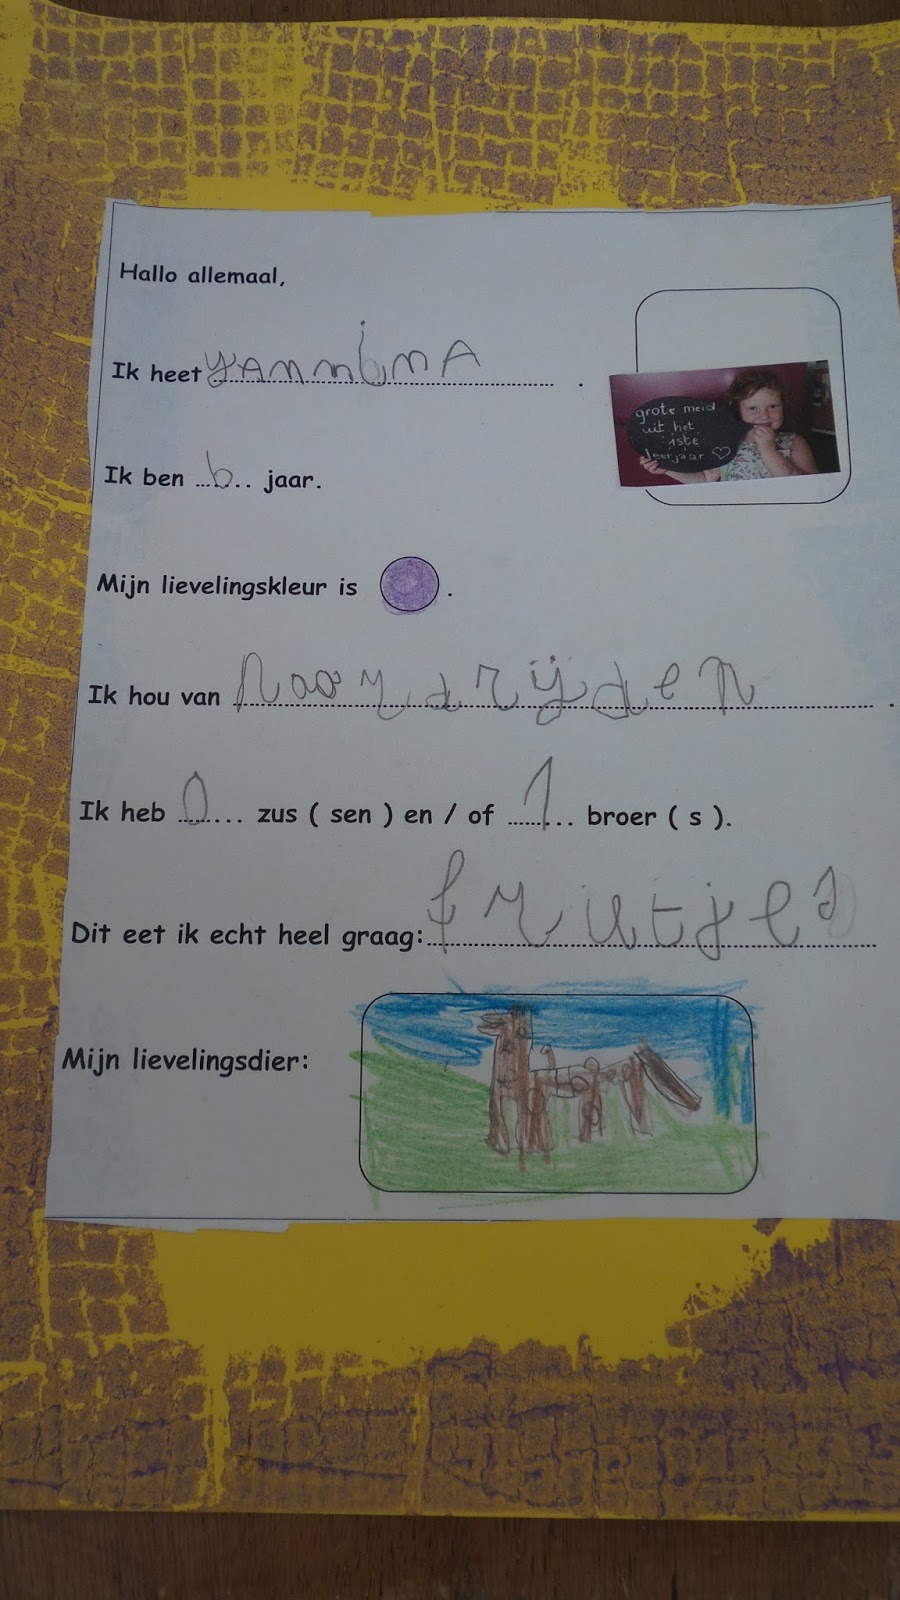 Hallo allemaal,
Ik heet yAnninA .
grote meid
uit het
1ste
leerjaar ♡
Ik ben 6 jaar.
Mijn lievelingskleur is .
Ik hou van paardrijden .
Ik heb 0 zus ( sen ) en / of 1 broer ( s ).
Dit eet ik echt heel graag: frietjes
Mijn lievelingsdier: